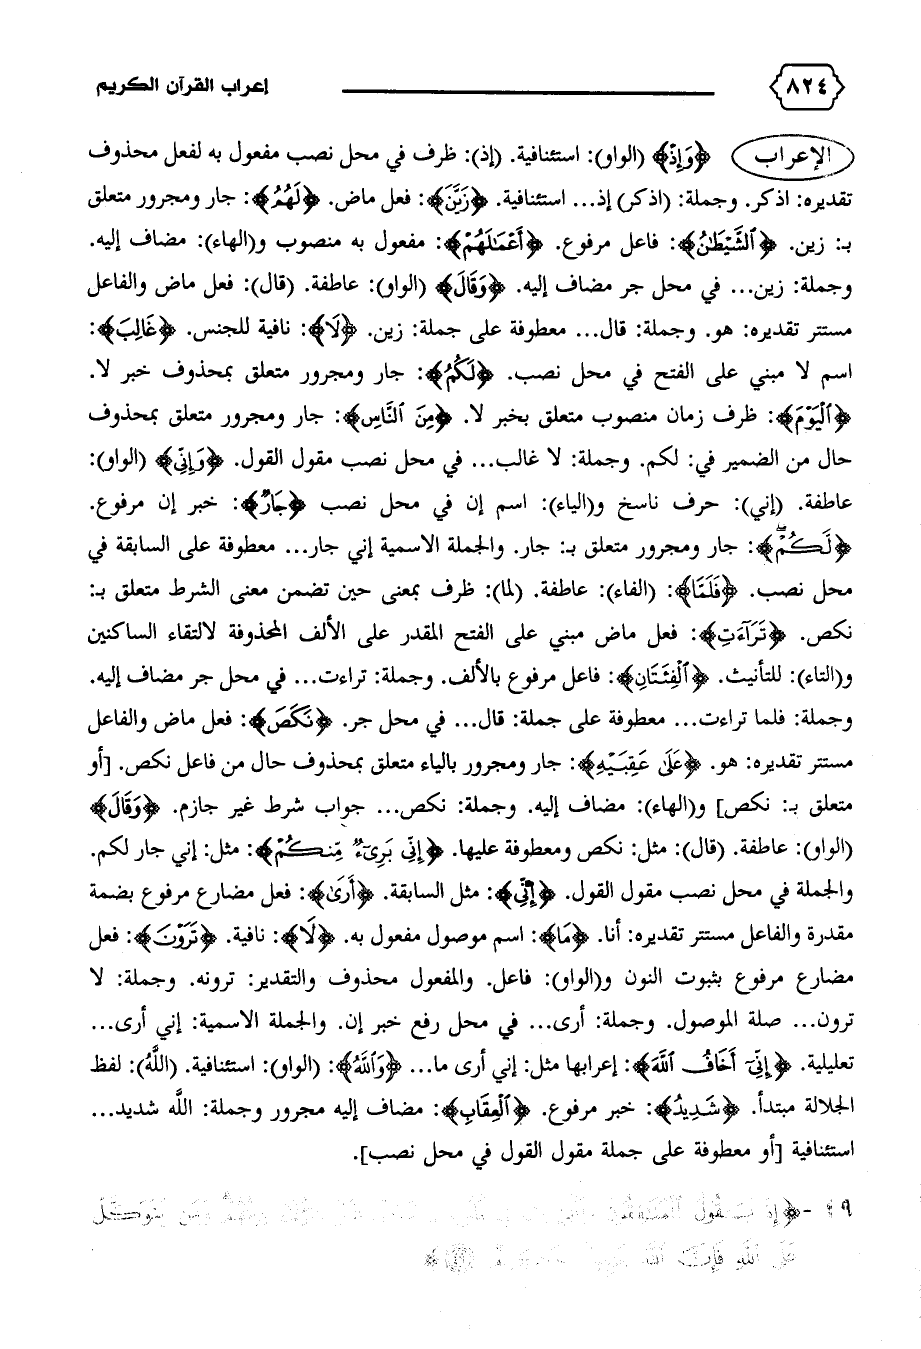 ٨٢٤ إعراب القرآن الكريم
الإعراب ﴿وَإِذْ﴾ (الواو): استئنافية. (إذ): ظرف في محل نصب مفعول به لفعل محذوف
تقديره: اذكر. وجملة: (اذكر) إذ... استئنافية. ﴿زَيَّنَ﴾: فعل ماض. ﴿لَهُمُ﴾: جار ومجرور متعلق
بـ: زين. ﴿الشَّيْطَٰنُ﴾: فاعل مرفوع. ﴿أَعْمَٰلَهُمْ﴾: مفعول به منصوب و(الهاء): مضاف إليه.
وجملة: زين... في محل جر مضاف إليه. ﴿وَقَالَ﴾ (الواو): عاطفة. (قال): فعل ماض والفاعل
مستتر تقديره: هو. وجملة: قال... معطوفة على جملة: زين. ﴿لَا﴾: نافية للجنس. ﴿غَالِبَ﴾:
اسم لا مبني على الفتح في محل نصب. ﴿لَكُمُ﴾: جار ومجرور متعلق بمحذوف خبر لا.
﴿الْيَوْمَ﴾: ظرف زمان منصوب متعلق بخبر لا. ﴿مِنَ النَّاسِ﴾: جار ومجرور متعلق بمحذوف
حال من الضمير في: لكم. وجملة: لا غالب... في محل نصب مقول القول. ﴿وَإِنِّي﴾ (الواو):
عاطفة. (إني): حرف ناسخ و(الياء): اسم إن في محل نصب ﴿جَارٌ﴾: خبر إن مرفوع.
﴿لَكُمْ﴾: جار ومجرور متعلق بـ: جار. والجملة الاسمية إني جار... معطوفة على السابقة في
محل نصب. ﴿فَلَمَّا﴾: (الفاء): عاطفة. (لما): ظرف بمعنى حين تضمن معنى الشرط متعلق بـ:
نكص. ﴿تَرَآءَتِ﴾: فعل ماض مبني على الفتح المقدر على الألف المحذوفة لالتقاء الساكنين
و(التاء): للتأنيث. ﴿الْفِئَتَانِ﴾: فاعل مرفوع بالألف. وجملة: تراءت... في محل جر مضاف إليه.
وجملة: فلما تراءت... معطوفة على جملة: قال... في محل جر. ﴿نَكَصَ﴾: فعل ماض والفاعل
مستتر تقديره: هو. ﴿عَلَىٰ عَقِبَيْهِ﴾: جار ومجرور بالياء متعلق بمحذوف حال من فاعل نكص. [أو
متعلق بـ: نكص] و(الهاء): مضاف إليه. وجملة: نكص... جواب شرط غير جازم. ﴿وَقَالَ﴾
(الواو): عاطفة. (قال): مثل: نكص ومعطوفة عليها. ﴿إِنِّي بَرِيٓءٌ مِّنكُمْ﴾: مثل: إني جار لكم.
والجملة في محل نصب مقول القول. ﴿إِنِّيٓ﴾: مثل السابقة. ﴿أَرَىٰ﴾: فعل مضارع مرفوع بضمة
مقدرة والفاعل مستتر تقديره: أنا. ﴿مَا﴾: اسم موصول مفعول به. ﴿لَا﴾: نافية. ﴿تَرَوْنَ﴾: فعل
مضارع مرفوع بثبوت النون و(الواو): فاعل. والمفعول محذوف والتقدير: ترونه. وجملة: لا
ترون... صلة الموصول. وجملة: أرى... في محل رفع خبر إن. والجملة الاسمية: إني أرى...
تعليلية. ﴿إِنِّيٓ أَخَافُ اللَّهَ﴾: إعرابها مثل: إني أرى ما... ﴿وَاللَّهُ﴾: (الواو): استئنافية. (اللَّهُ): لفظ
الجلالة مبتدأ. ﴿شَدِيدُ﴾: خبر مرفوع. ﴿الْعِقَابِ﴾: مضاف إليه مجرور وجملة: اللَّه شديد...
استئنافية [أو معطوفة على جملة مقول القول في محل نصب].
٤٩ -﴿إِذْ يَقُولُ الْمُنَافِقُونَ وَمَن يَتَوَكَّلْ
عَلَى اللَّهِ فَإِنَّ اللَّهَ